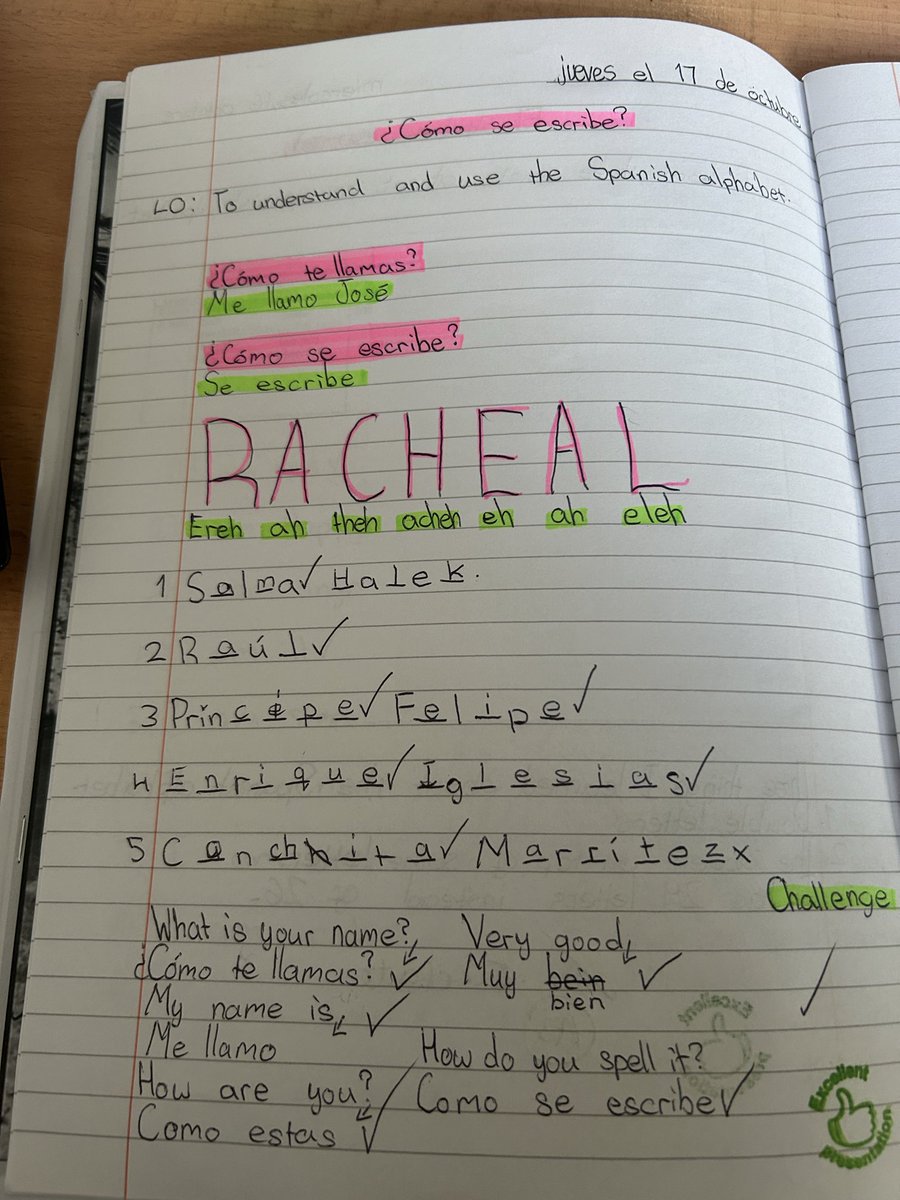 jueves el 17 de octubre
¿Cómo se escribe?
LO: To understand and use the Spanish alphabet.
¿Cómo te llamas?
Me llamo José
¿Cómo se escribe?
Se escribe
RACHEAL
Ereh ah theh acheh eh ah eleh
1 Salma Halek.
2 Raúl
3 Príncipe Felipe
4 Enrique Iglesias
5 Conchita Marrítez x
Challenge
What is your name?
¿Cómo te llamas?
My name is
Me llamo
How are you?
Como estas
Very good
Muy bein
bien
How do you spell it?
Como se escribe
Excellent
presentation